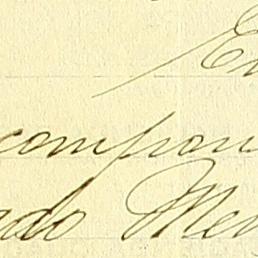 En
compon
ado Men